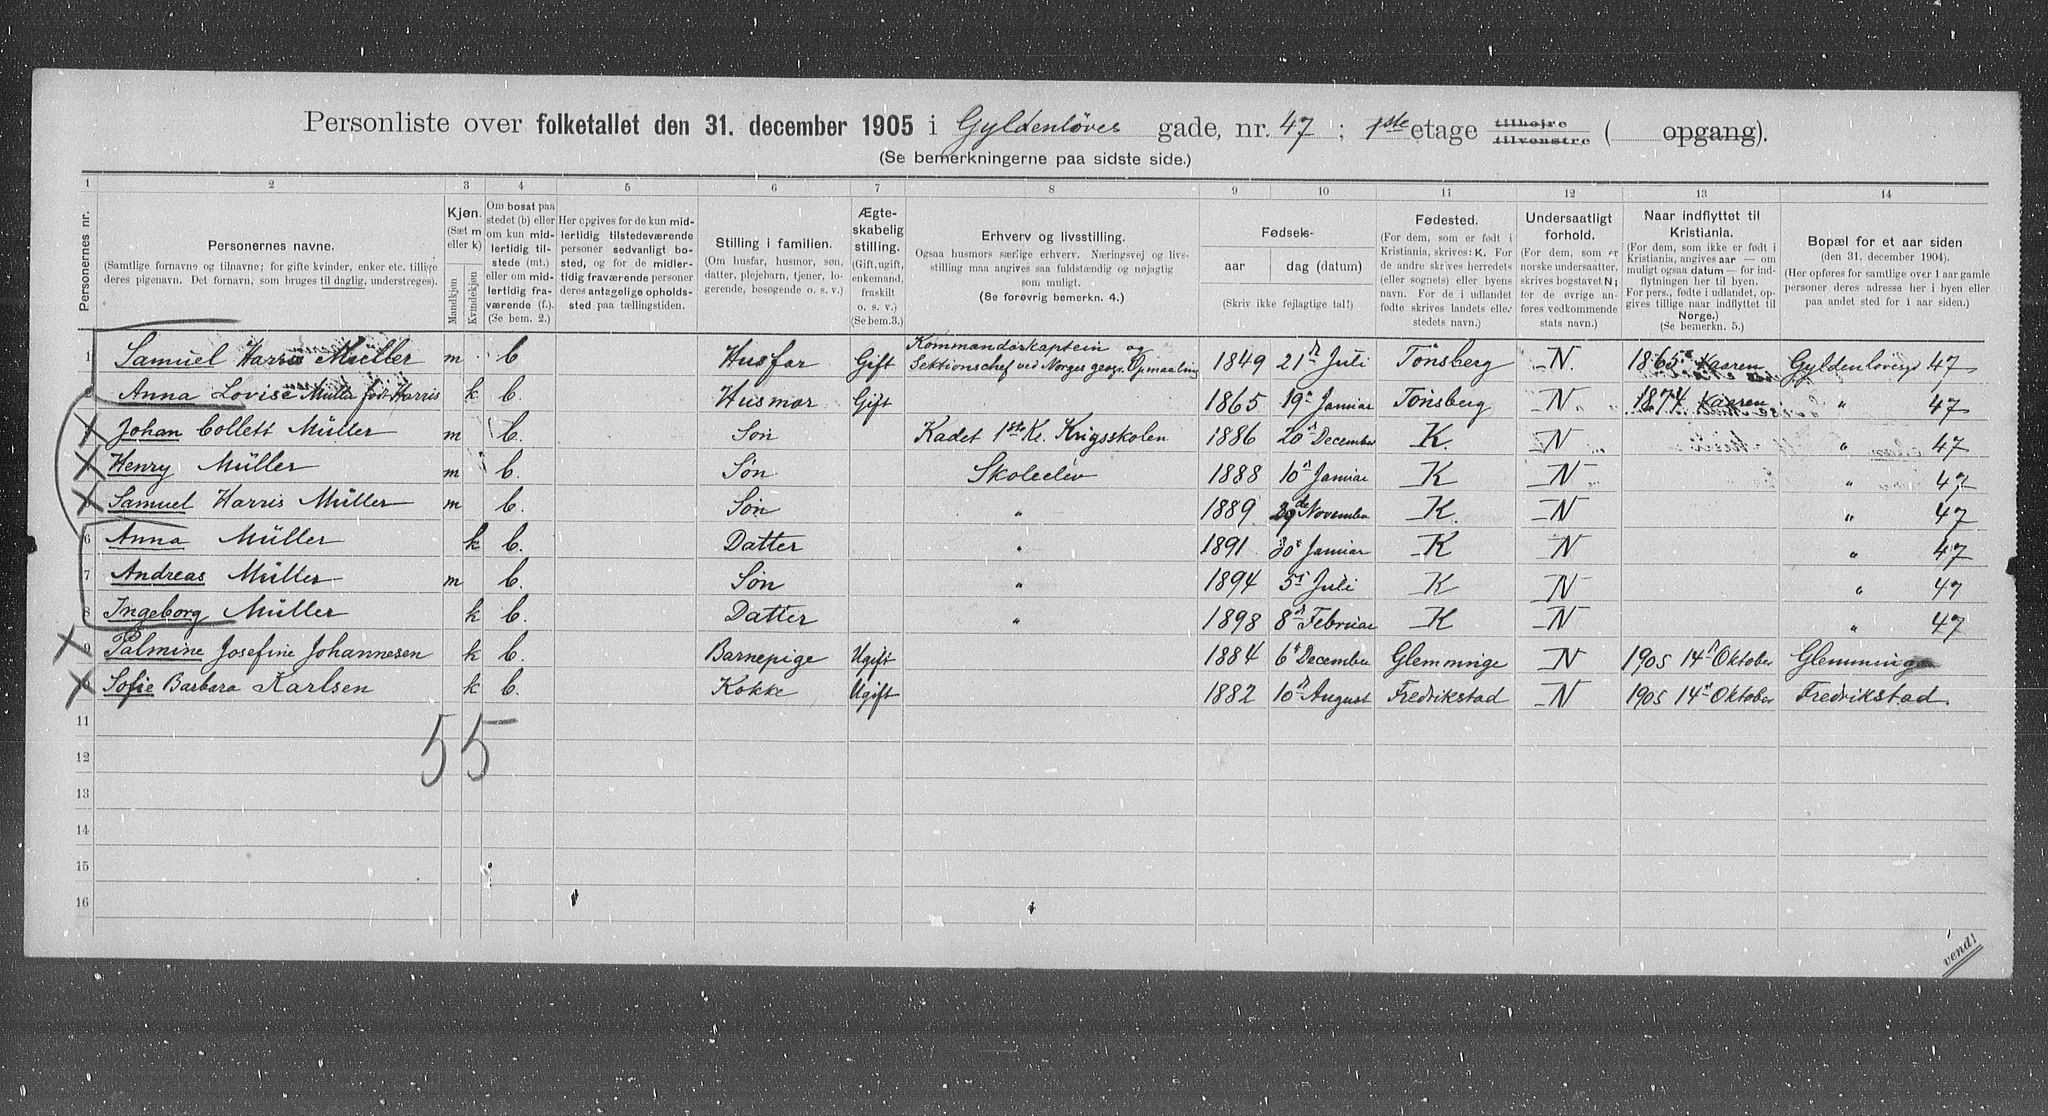 Personliste over folketallet den 31. december 1905 i Gyldenløves gade, nr. 47 ; 1ste etage tilhøjre tilvenstre ( opgang).
(Se bemerkningerne paa sidste side.)
1 2 3 4 5 6 7 8 9 10 11 12 13 14
Personernes nr.
Personernes navne.
(Samtlige fornavne og tilnavne; for gifte kvinder, enker etc. tillige
deres pigenavn. Det fornavn, som bruges til daglig, understreges).
Kjøn.
(Sæt m
eller k)
Mandkjøn
Kvindekjøn
Om bosat paa
stedet (b) eller
om kun mid-
lertidig til-
stede (mt.)
eller om mid-
lertidig fra-
værende (f.).
(Se bem. 2.)
Her opgives for de kun mid-
lertidig tilstedeværende
personer sedvanligt bo-
sted, og for de midler-
tidig fraværende personer
deres antagelige opholds-
sted paa tællingstiden.
Stilling i familien.
(Om husfar, husmor, søn,
datter, plejebarn, tjener, lo-
gerende, besøgende o. s. v.)
Ægte-
skabelig
stilling.
(Gift, ugift,
enkemand,
fraskilt
o. s. v.)
(Se bem.3.)
Erhverv og livsstilling.
Ogsaa husmors særlige erhverv. Næringsvej og livs-
stilling maa angives saa fuldstændig og nøjagtig
som muligt.
(Se forøvrig bemerkn. 4.)
Fødsels-
aar
dag (datum)
(Skriv ikke fejlagtige tal!)
Fødested.
(For dem, som er født i
Kristiania, skrives: K. For
de andre skrives herredets
(eller sognets) eller byens
navn. For de i udlandet
fødte skrives landets elle-
stedets navn.)
Undersaatligt
forhold.
(For dem, som er
norske undersaatter,
skrives bogstavet N;
for de øvrige an-
føres vedkommende
stats navn.)
Naar indflyttet til
Kristiania.
(For dem, som ikke er født i
Kristiania, angives aar — om
muligt ogsaa datum — for ind-
flytningen her til byen.
For pers., fødte i udlandet, op-
gives tillige naar indflyttet til
Norge.)
(Se bemerkn. 5.)
Bopæl for et aar siden
(den 31. december 1904).
(Her opføres for samtlige over 1 aar gamle
personer deres adresse her i byen eller
paa andet sted for 1 aar siden.)
1 Samuel Harris Mueller m b Husfar Gift Kommandørkaptein og
Sektionschef ved Norges geogr. Opmaaling 1849 21 Juli Tönsberg N. 1865 Gyldenløvesgd 47
Anna Lovise Müller født Harris k b. Husmor Gift 1865 19 Januar Tönsberg N 1874 " 47
Johan Collett Müller m b. Søn Kadet 1ste Kl. Krigsskolen 1886 20 December K. N " 47
Henry Müller m b. Søn Skoleelev 1888 10 Januar K N " 47
Samuel Harris Müller m b. Søn " 1889 29de November K. N " 47
6 Anna Müller k b. Datter " 1891 30 Januar K N " 47
7 Andreas Müller m b. Søn " 1894 5 Juli K N " 47
8 Ingeborg Müller k b. Datter " 1898 8 Februar K N " 47
9 Palmine Josefine Johannesen k b. Barnepige Ugift 1884 6 December Glemminge N 1905 14 Oktober Glemminge
Sofie Barbara Karlsen k b. Kokke Ugift 1882 10 August Fredrikstad N 1905 14 Oktober Fredrikstad.
11
55
12
13
14
15
16
vend!